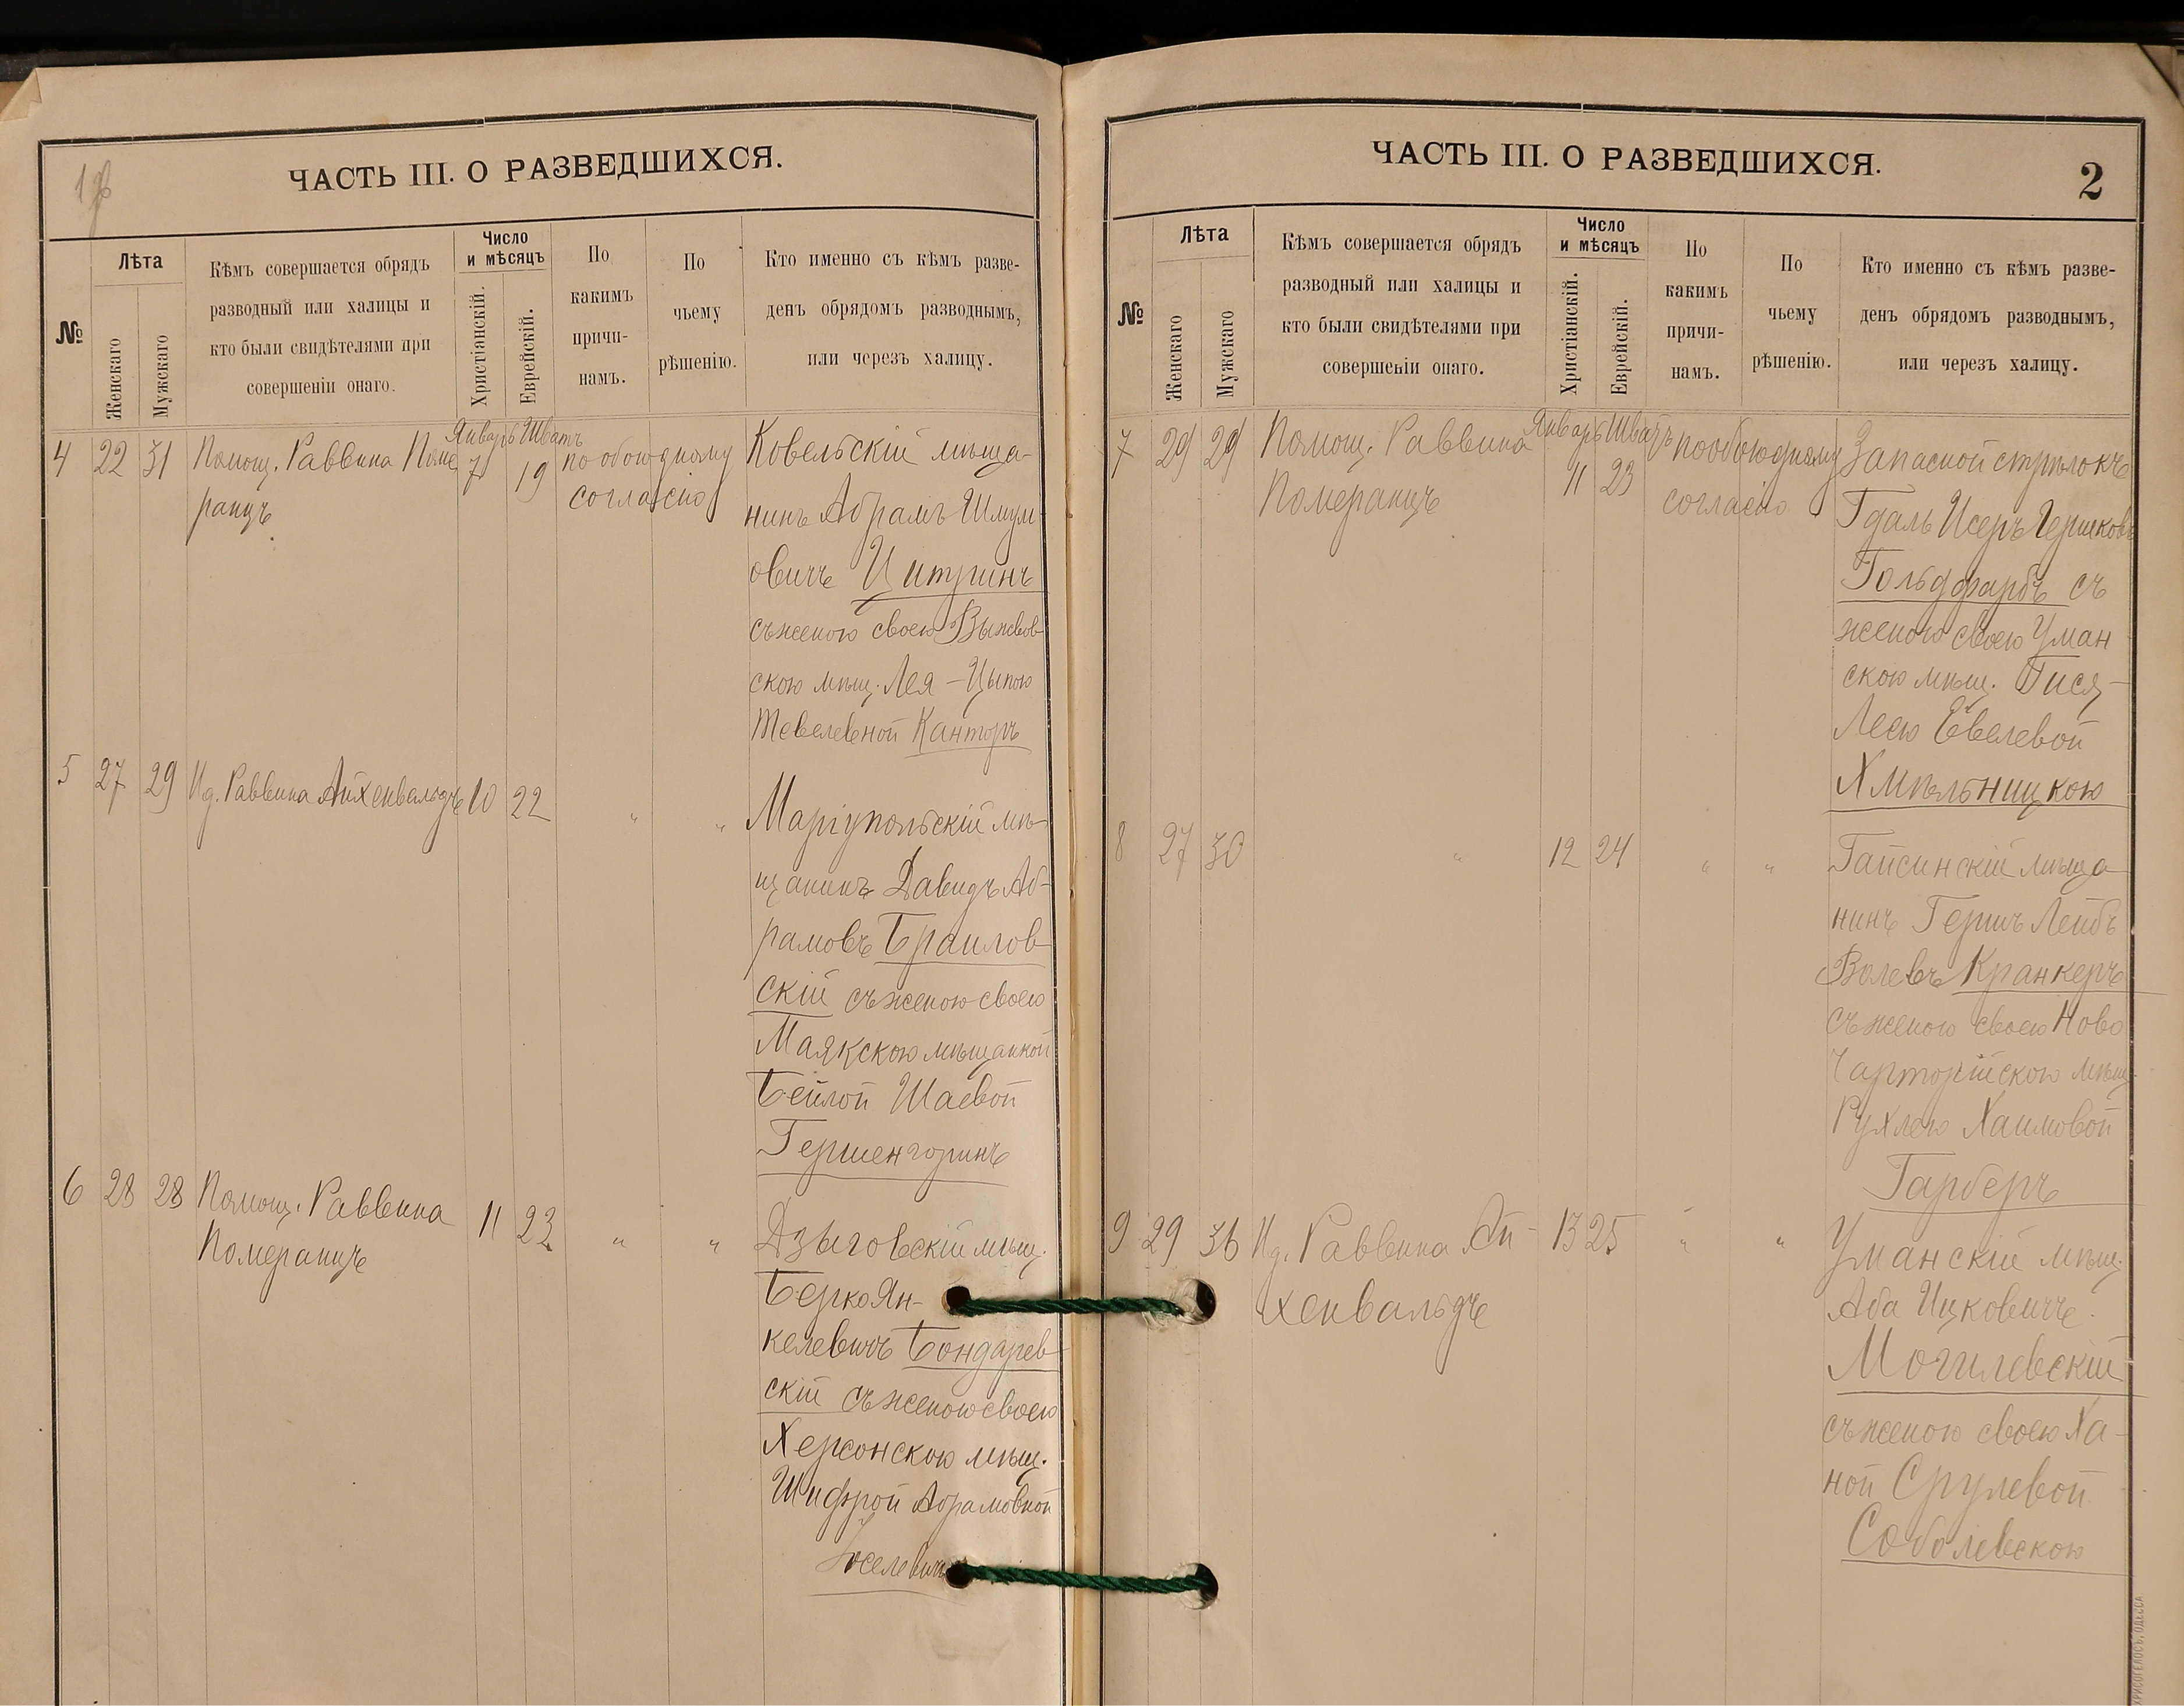 ЧАСТЬ III. О РАЗВЕДШИХСЯ.
№
Лѣта
Женскаго
Мужскаго
Кѣмъ совершается обрядъ
разводный или халицы и
кто были свидѣтелями при
совершеніи онаго.
Число
и мѣсяцъ
Христіанскій.
Еврейскій.
По
какимъ
причи-
намъ.
По
чьему
рѣшенію.
Кто именно съ кѣмъ разве-
денъ обрядомъ разводнымъ,
или черезъ халицу.
4 22 31
Помощ. Раввина Поме
ранцъ
Январь Шватъ
7 19
по обоюдному
согласію
Ковельскій мѣща-
нинъ Абрамъ Шмул-
овичъ Цитринъ
съ женою своею Выжвов-
скою мѣщ. Лея-Цыпою
Тевелевной Канторъ
5 27 29
И д. Раввина Айхенвальдъ
10 22
" "
Маріупольскій мѣ-
щанинъ Давидъ Аб-
рамовъ Браилов-
скій съ женою своею
Маякскою мѣщанкой
Бейлой Шаевой
Гершенгоринъ
6 28 28
Помощ. Раввина
Померанцъ
11 23
" "
Дзыговскій мѣщ.
Берко Ян-
келевичъ Бондарев-
скій съ женою своею
Херсонскою мѣщ.
Шифрой Абрамовной
Іоселевичъ
ЧАСТЬ III. О РАЗВЕДШИХСЯ.
2
№
Лѣта
Женскаго
Мужскаго
Кѣмъ совершается обрядъ
разводный или халицы и
кто были свидѣтелями при
совершеніи онаго.
Число
и мѣсяцъ
Христіанскій.
Еврейскій.
По
какимъ
причи-
намъ.
По
чьему
рѣшенію.
Кто именно съ кѣмъ разве-
денъ обрядомъ разводнымъ,
или черезъ халицу.
7 29 29
Помощ. Раввина
Померанцъ
Январь Шватъ
11 23
по обоюдному
согласію
Запасной стрѣлокъ
Гдаль Исеръ Гершковъ
Гольдфарбъ съ
женою своею Уман
скою мѣщ. Гися-
Леею Евелевой
Хмѣльницкою
8 27 30
"
12 24
" "
Гайсинскій мѣща
нинъ Гершъ Лейбъ
Волевъ Кранкеръ
съ женою своею Ново
Чарторійскою мѣщ.
Рухлею Хаимовой
Гарберъ
9 29 36
И д. Раввина Ай-
хенвальдъ
13 25
" "
Уманскій мѣщ.
Аба Ицковичъ
Могилевскій
съ женою своею Ха-
ной Срулевой
Соболевскою